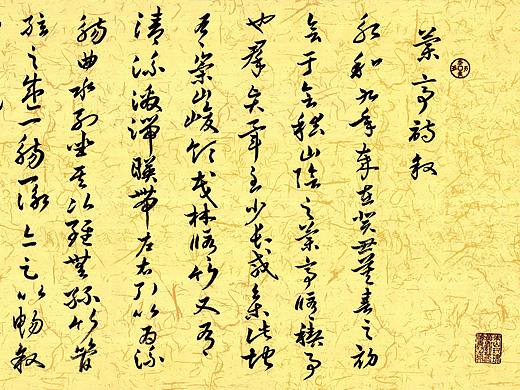 蘭亭詩敘
永和九年歲在癸丑暮春之初
會于會稽山陰之蘭亭脩禊事
也群賢畢至少長咸集此地
有崇山峻領茂林脩竹又有
清流激湍暎帶左右引以為流
觴曲水列坐其次雖無絲竹管
弦之盛一觴一詠亦足以暢敘